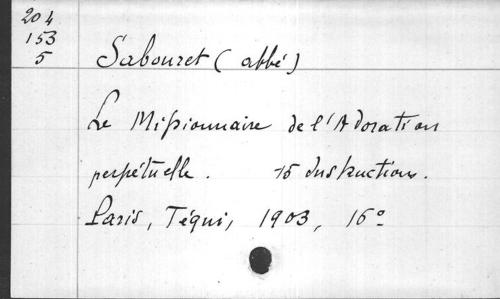 204
153
5
Sabouret (abbé)
Le Missionnaire de l'Adoration
perpétuelle. 15 Instructions.
Paris, Téqui, 1903, 16°